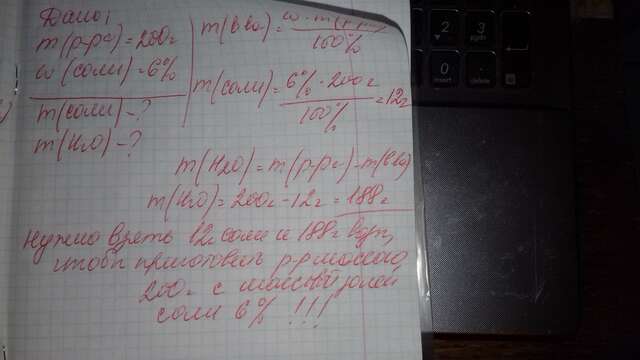 Дано:
m(р-ра)=200г
ω(соли)=6%
m(соли)-?
m(H2O)-?
m(в ва)=ω·m(р-ра)
100%
m(соли)=6%·200г=12г
100%
m(H2O)=m(р-ра)-m(в ва)
m(H2O)=200г-12г=188г
Нужно взять 12г соли и 188г воды,
чтобы приготовить р-р массою
200г с массовой долей
соли 6% !!!
2
3
0
Insert
.
Delete